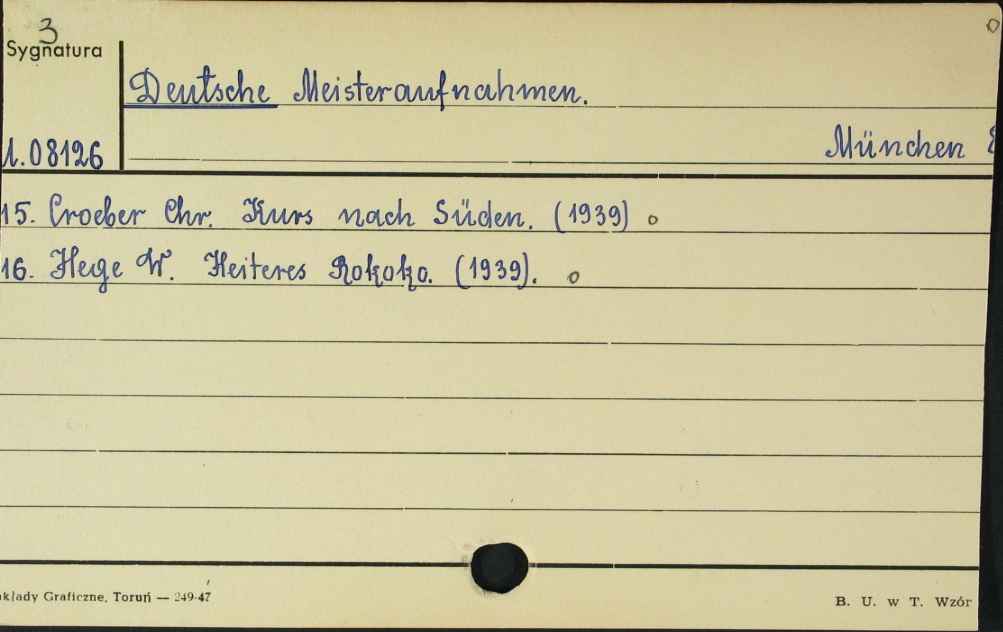 3
Sygnatura
Deutsche Meisteraufnahmen.
1.08126
München
15. Croeber Chr. Kurs nach Süden. (1939) o
16. Hege W. Heiteres Rokoko. (1939). o
kłady Graficzne, Toruń — 249-47
B. U. w T. Wzór